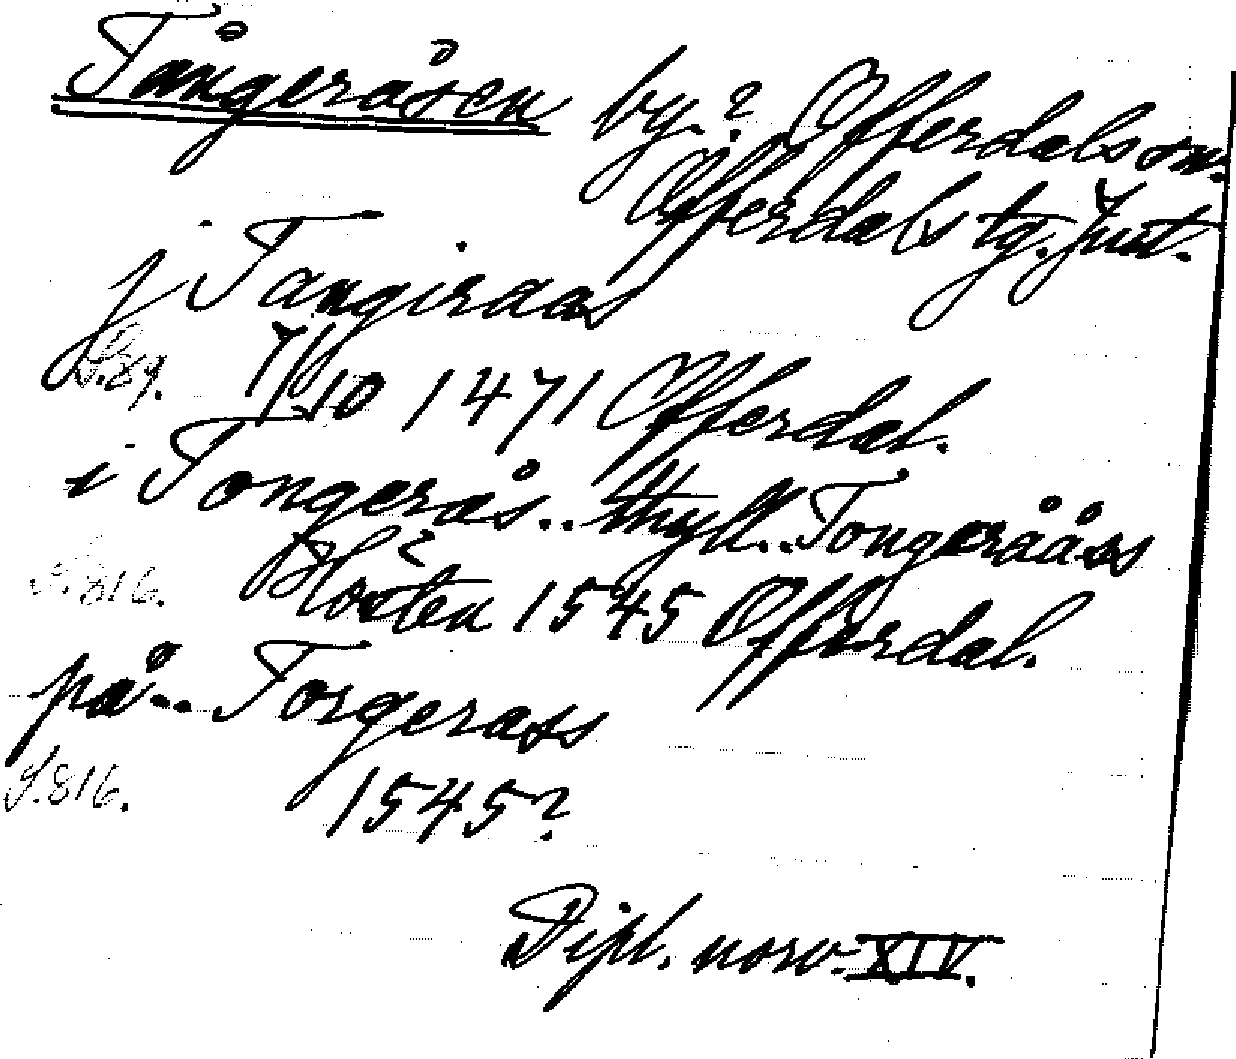 Tångeråsen by.? Offerdals sn.
Offerdals tg. Jmt.
j Tangiraas
S.89. 7/10 1471 Offerdal.
i Tongerås.. tthyll.. Tongerååss
S.816. Hösten 1545 Offerdal.
på.. Torgerass
S.816. 1545?
Dipl. norv. XIV.